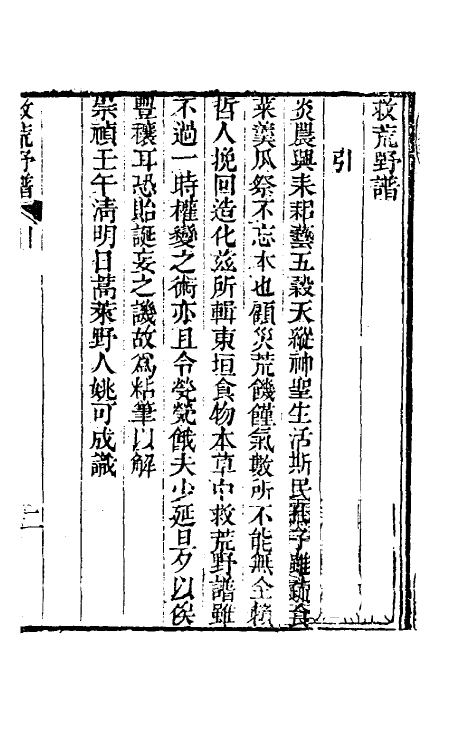 救荒野譜
引
炎農興耒耜藝五穀天縱神聖生活斯民孔子雖蔬食
菜羹瓜祭不忘本也顧災荒饑饉氣數所不能無全賴
哲人挽回造化茲所輯東垣食物本草中救荒野譜雖
不過一時權變之術亦且令煢煢餓夫少延旦夕以俟
豐穰耳恐貽誕妄之譏故爲粘筆以解
崇禎壬午淸明日蒿萊野人姚可成識
救荒野譜
引
二